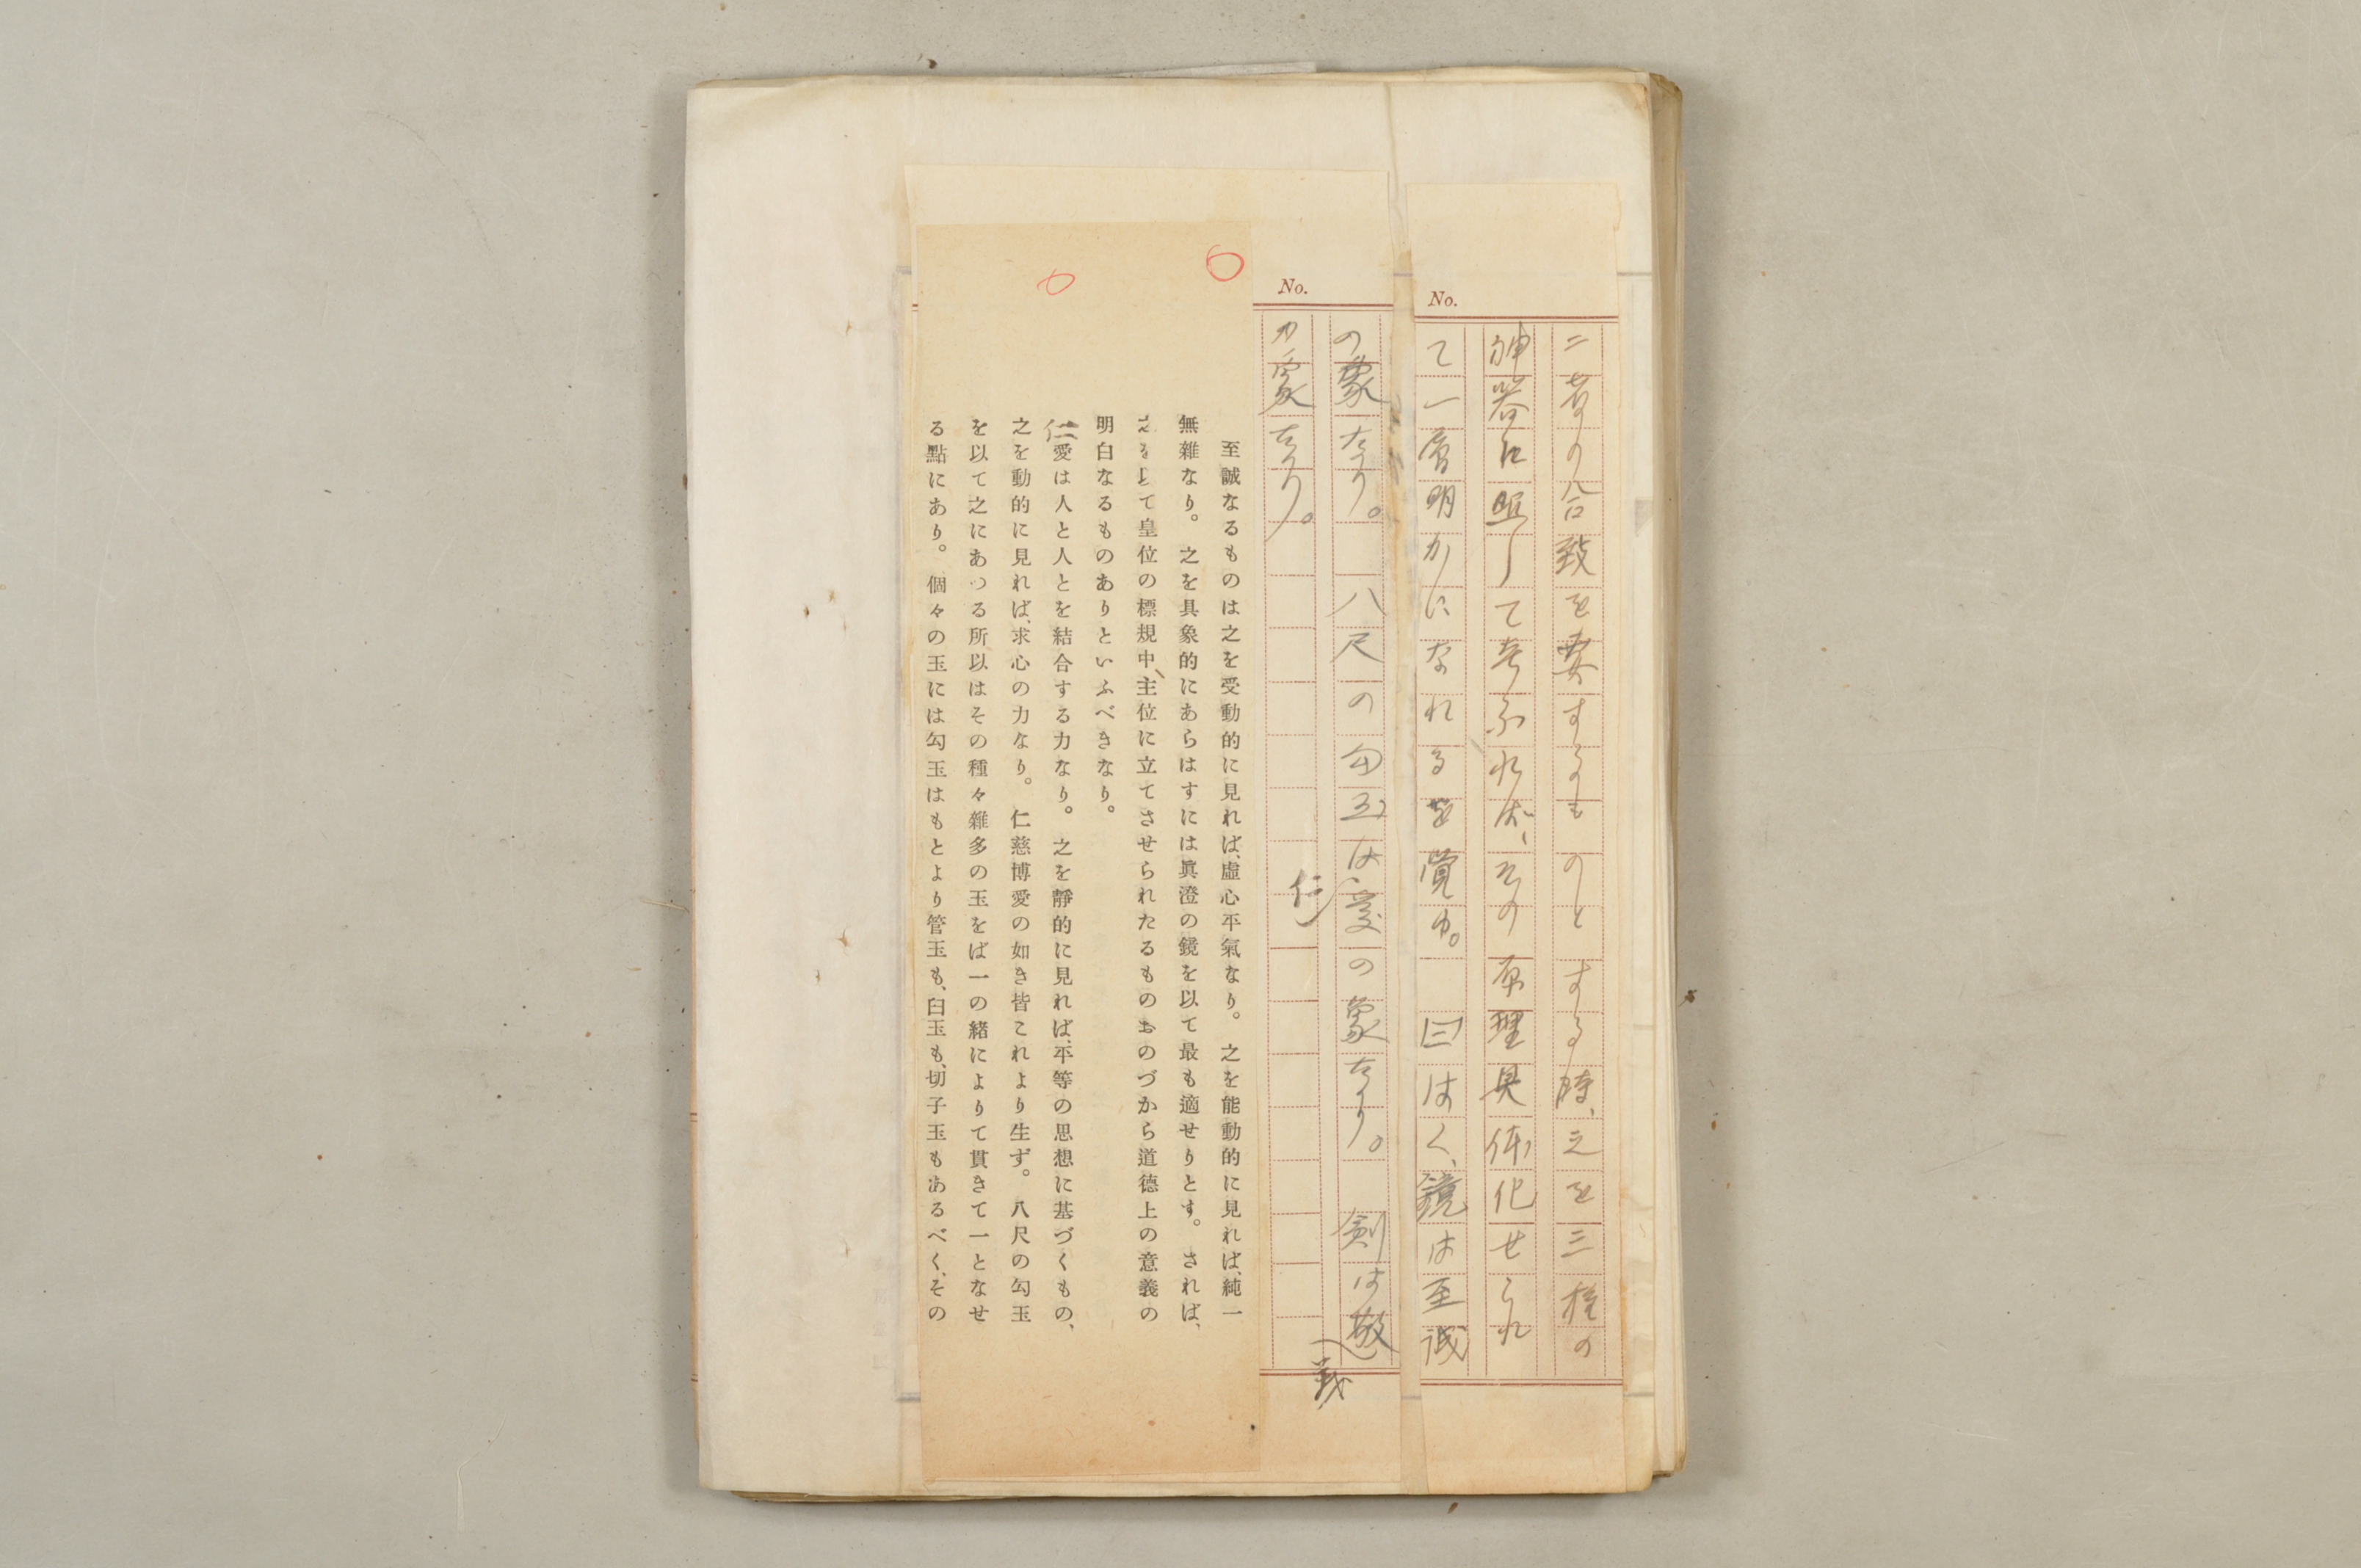 No.
二者の合致を要するものとする時、之を三種の
神器に照して考ふれば、その原理具体化せられ
て一層明かになれるを覚ゆ。曰はく、鏡は至誠
No.
の象なり。八尺の勾玉は愛の象なり。剣は敬
仁
義
力象なり。
至誠なるものは之を受動的に見れば、虛心平氣なり。之を能動的に見れば、純一
無雜なり。之を具象的にあらはすには眞澄の鏡を以て最も適せりとす。されば、
之をして皇位の標規中、主位に立てさせられたるものおのづから道德上の意義の
明白なるものありといふべきなり。
仁愛は人と人とを結合する力なり。之を靜的に見れば、平等の思想に基づくもの、
之を動的に見れば、求心の力なり。仁慈博愛の如き皆これより生ず。八尺の勾玉
を以て之にあつる所以はその種々雜多の玉をば一の緒によりて貫きて一となせ
る點にあり。個々の玉には勾玉はもとより管玉も、臼玉も、切子玉もあるべく、その